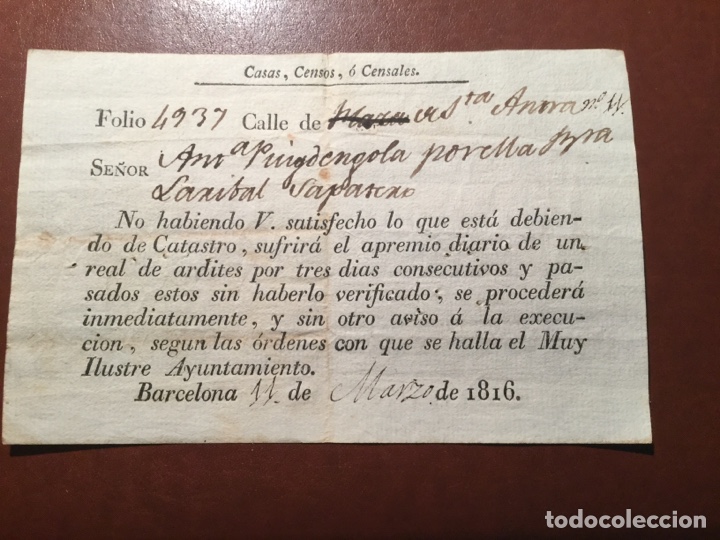 Casas, Censos, ó Censales.
Folio 4937 Calle de Plaza Sta Anna nº 11.
SEÑOR Anta Puigdengola por ella
Laribal Sapatero
No habiendo V. satisfecho lo que está debien-
do de Catastro, sufrirá el apremio diario de un
real de ardites por tres dias consecutivos y pa-
sados estos sin haberlo verificado, se procederá
inmediatamente, y sin otro aviso á la execu-
cion, segun las órdenes con que se halla el Muy
Ilustre Ayuntamiento.
Barcelona 11. de Marzo de 1816.
todocoleccion
todocoleccion.net